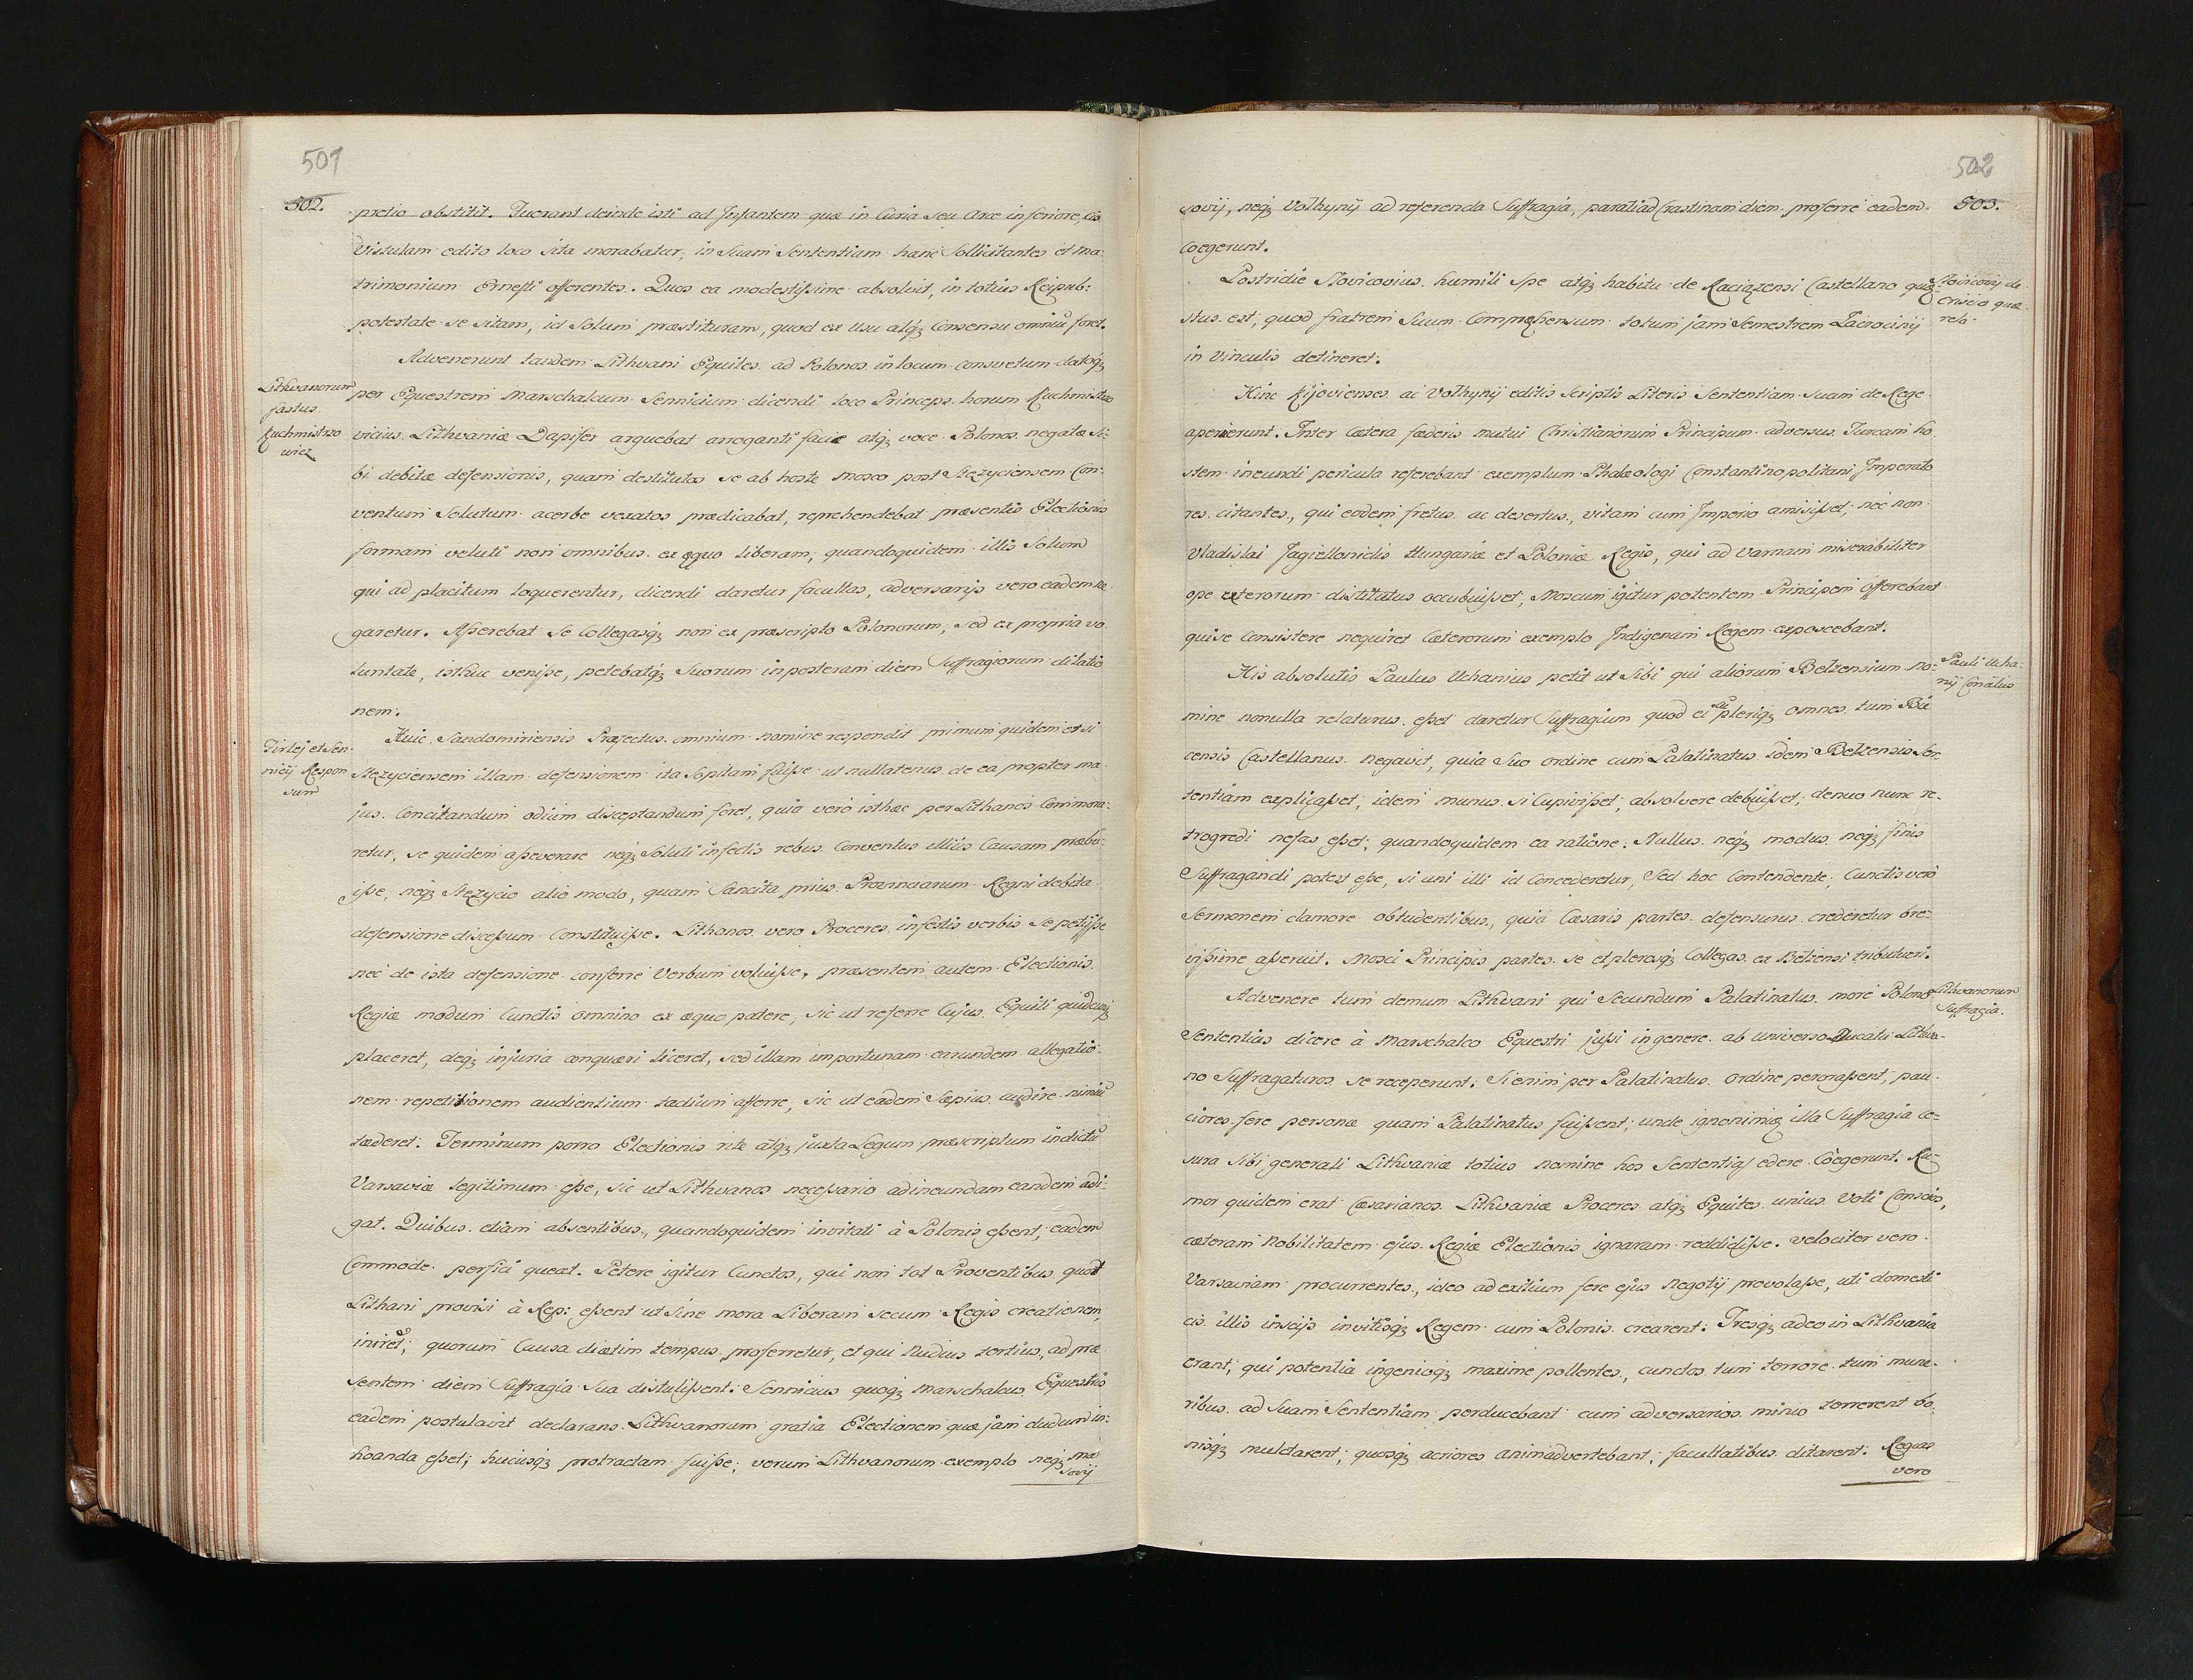 501
502.
pretio obstitit. Iverant deinde isti ad Infantem quæ in Curia seu Arce inferiore, cis
Vistulam edito loco sita morabatur, in Suam Sententiam hanc Sollicitantes et ma-
trimonium Ernesti offerentes. Quos ea modestissime absolvit, in totius Reipub:
potestate se sitam, id Solum præstituram, quod ex usu atq; Consensu omniū foret.
Advenerunt tandem Lithvani Equites ad Polonos in locum consvetum datoq;
Lithvanorum
fastus.
Kuchmistrzo
wicz
per Equestrem Marschalcum Sennicium dicendi loco Princeps horum Kuchmistrzo
vicius Lithvaniæ Dapifer arguebat arroganti facie atq; voce Polonos negatæ Si-
bi debitæ defensionis, quam destitutos se ab hoste Mosco post Stezyciensem Con-
ventum Solutum acerbe vexatos prædicabat, reprehendebat præsentis Electionis
formam veluti non omnibus ex æquo liberam, quandoquidem illis Solum
qui ad placitum loquerentur, dicendi daretur facultas, adversarijs vero eadem ne-
garetur. Asserebat Se Collegasq; non ex præscripto Polonorum, sed ex propria vo-
luntate, isthuc venisse, petebatq; Suorum in posteram diem Suffragiorum dilatio
nem.
Firlej et Sen-
nicij Respon
sum
Huic Sandomiriensis Præfectus omnium nomine respondit primum quidem etsi
Stezyciensem illam defensionem ita Sopitam fuisse ut nullatenus de ea propter ma-
jus Concitandum odium disceptandum foret, quia vero isthæc per Lithanos Commora-
retur, se quidem asseverare neq; Soluti infectis rebus Conventus illius Causam præbu-
isse, neq; Stezycio alio modo, quam Sancita prius Provinciarum Regni debita
defensione discessum Constituisse. Lithanos vero Proceres infestis verbis se petijsse
nec de ista defensione conferre Verbum voluisse, præsentem autem Electionis
Regiæ modum Cunctis omnino ex æquo patere, sic ut referre Cujus Equiti quidcunq;
placeret, deq; injuria conquæri liceret, sed illam importunam earundem allegatio-
nem repetitionem audientium tædium afferre, sic ut eadem Sæpius audire nimiū
tæderet. Terminum porro Electionis rite atq; juxta Legum præscriptum indictū
Varsaviæ legitimum esse, sic ut Lithvanos necessario ad ineundam eandem adi-
gat. Quibus etiam absentibus, quandoquidem invitati à Polonis essent, eadem
Commode perfici queat. Petere igitur Cunctos, qui non tot Proventibus quot
Lithani provisi à Rep: essent ut Sine mora Liberam secum Regis creationem,
iniret; quorum Causa diatim tempus proferretur, et qui Nudius tertius, ad præ
sentem diem Suffragia Sua distulissent. Sennicius quoq; Marschalcus Equestris
eadem postulavit declarans Lithvanorum gratia Electionem quæ jam dudum in-
hoanda esset; hucusq; protractam fuisse; verum Lithvanorum exemplo neq; Ma
sovij
502
503.
sovij, neq; Volhynij ad referenda Suffragia, parati ad Crastinam diem proferre eadem
Coegerunt.
Postridie Novicovius humili Spe atq; habitu de Raciązensi Castellano quæ-
Novicovij de
Criscio quæ-
rela
stus est, quod fratrem Suum Comprehensum totum jam Semestrem Lacrocinij
in vinculis detineret.
Hinc Kijovienses ac Volhynij editis Scriptis Literis Sententiam Suam de Rege
aperuerunt. Inter Cætera fæderis mutui Christianorum Principum adversus Turcam ho
stem ineundi pericula referebant exemplum Phaleologi Constantinopolitani Imperato
res citantes, qui eodem fretus ac desertus, vitam cum Imperio amisisset, nec non
Vladislai Jagiellonidis Hungariæ et Poloniæ Regis, qui ad Varnam miserabiliter
ope exterorum distitutus occubuisset, Moscum igitur potentem Principem offerebant
qui se Consistere nequiret Cæterorum exemplo Indigenam Regem exposcebant.
His absolutis Paulus Uchanius petit ut Sibi qui aliorum Belzensium no-
Pauli Ucha-
nij Conatus
mine nonulla relaturus esset daretur Suffragium quod ei plerique omnes tum Bie
censis Castellanus negavit, quia Suo ordine cum Palatinatus idem Belzensis Sen
tentiam explicasset, idem munus si Cupivisset, absolvere debuisset; denuo nunc re-
trogredi nefas esset, quandoquidem ea ratione. Nullus neq; modus neq; finis
Suffragandi potest esse, si uni illi id Concederetur, Sed hoc Contendente, Cunctis vero
Sermonem clamore obtudentibus, quia Cæsaris partes defensurus crederetur bre-
vissime asseruit. Mosci Principis partes se et plerosq; Collegas ex Belzensi tributuri.
Advenere tum demum Lithvani qui Secundum Palatinatus more Polono
Lithvanorum
Suffragia.
Sententias dicere à Marschalco Equestri jussi in genere ab universo Ducatu Lithva-
no Suffragaturos se receperunt. Si enim per Palatinatus ordine perorassent, pau
ciores fere personæ quam Palatinatus fuissent, unde ignonimiæ illa Suffragia ce-
sura sibi generali Lithvaniæ totius nomine hos Sententias edere Coegerunt. Ru-
mor quidem erat Cæsarianos Lithvaniæ Proceres atq; Equites unius Voti Conscios,
cæteram Nobilitatem ejus Regiæ Electionis ignaram reddidisse. Velociter vero
Varsaviam procurrentes, ideo ad exitium fere ejus Negotij provolasse, uti domesti
cis illis insciis invitisq; Regem cum Polonis crearent. Tresq; adeo in Lithvania
erant, qui potentia ingenioq; maxime pollentes, cunctos tum terrore tum mune-
ribus ad Suam Sententiam perducebant cum adversarios minis terrerent bo-
nisq; mulctarent, quosq; acriores animadvertebant, facultatibus ditarent. Regias
vero